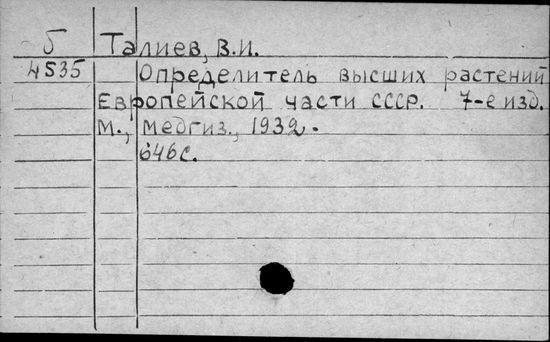 Б Талиев, В.И.
4535 Определитель высших растений
Европейской части СССР. 7-е изд.
М., Медгиз., 1932.
646с.